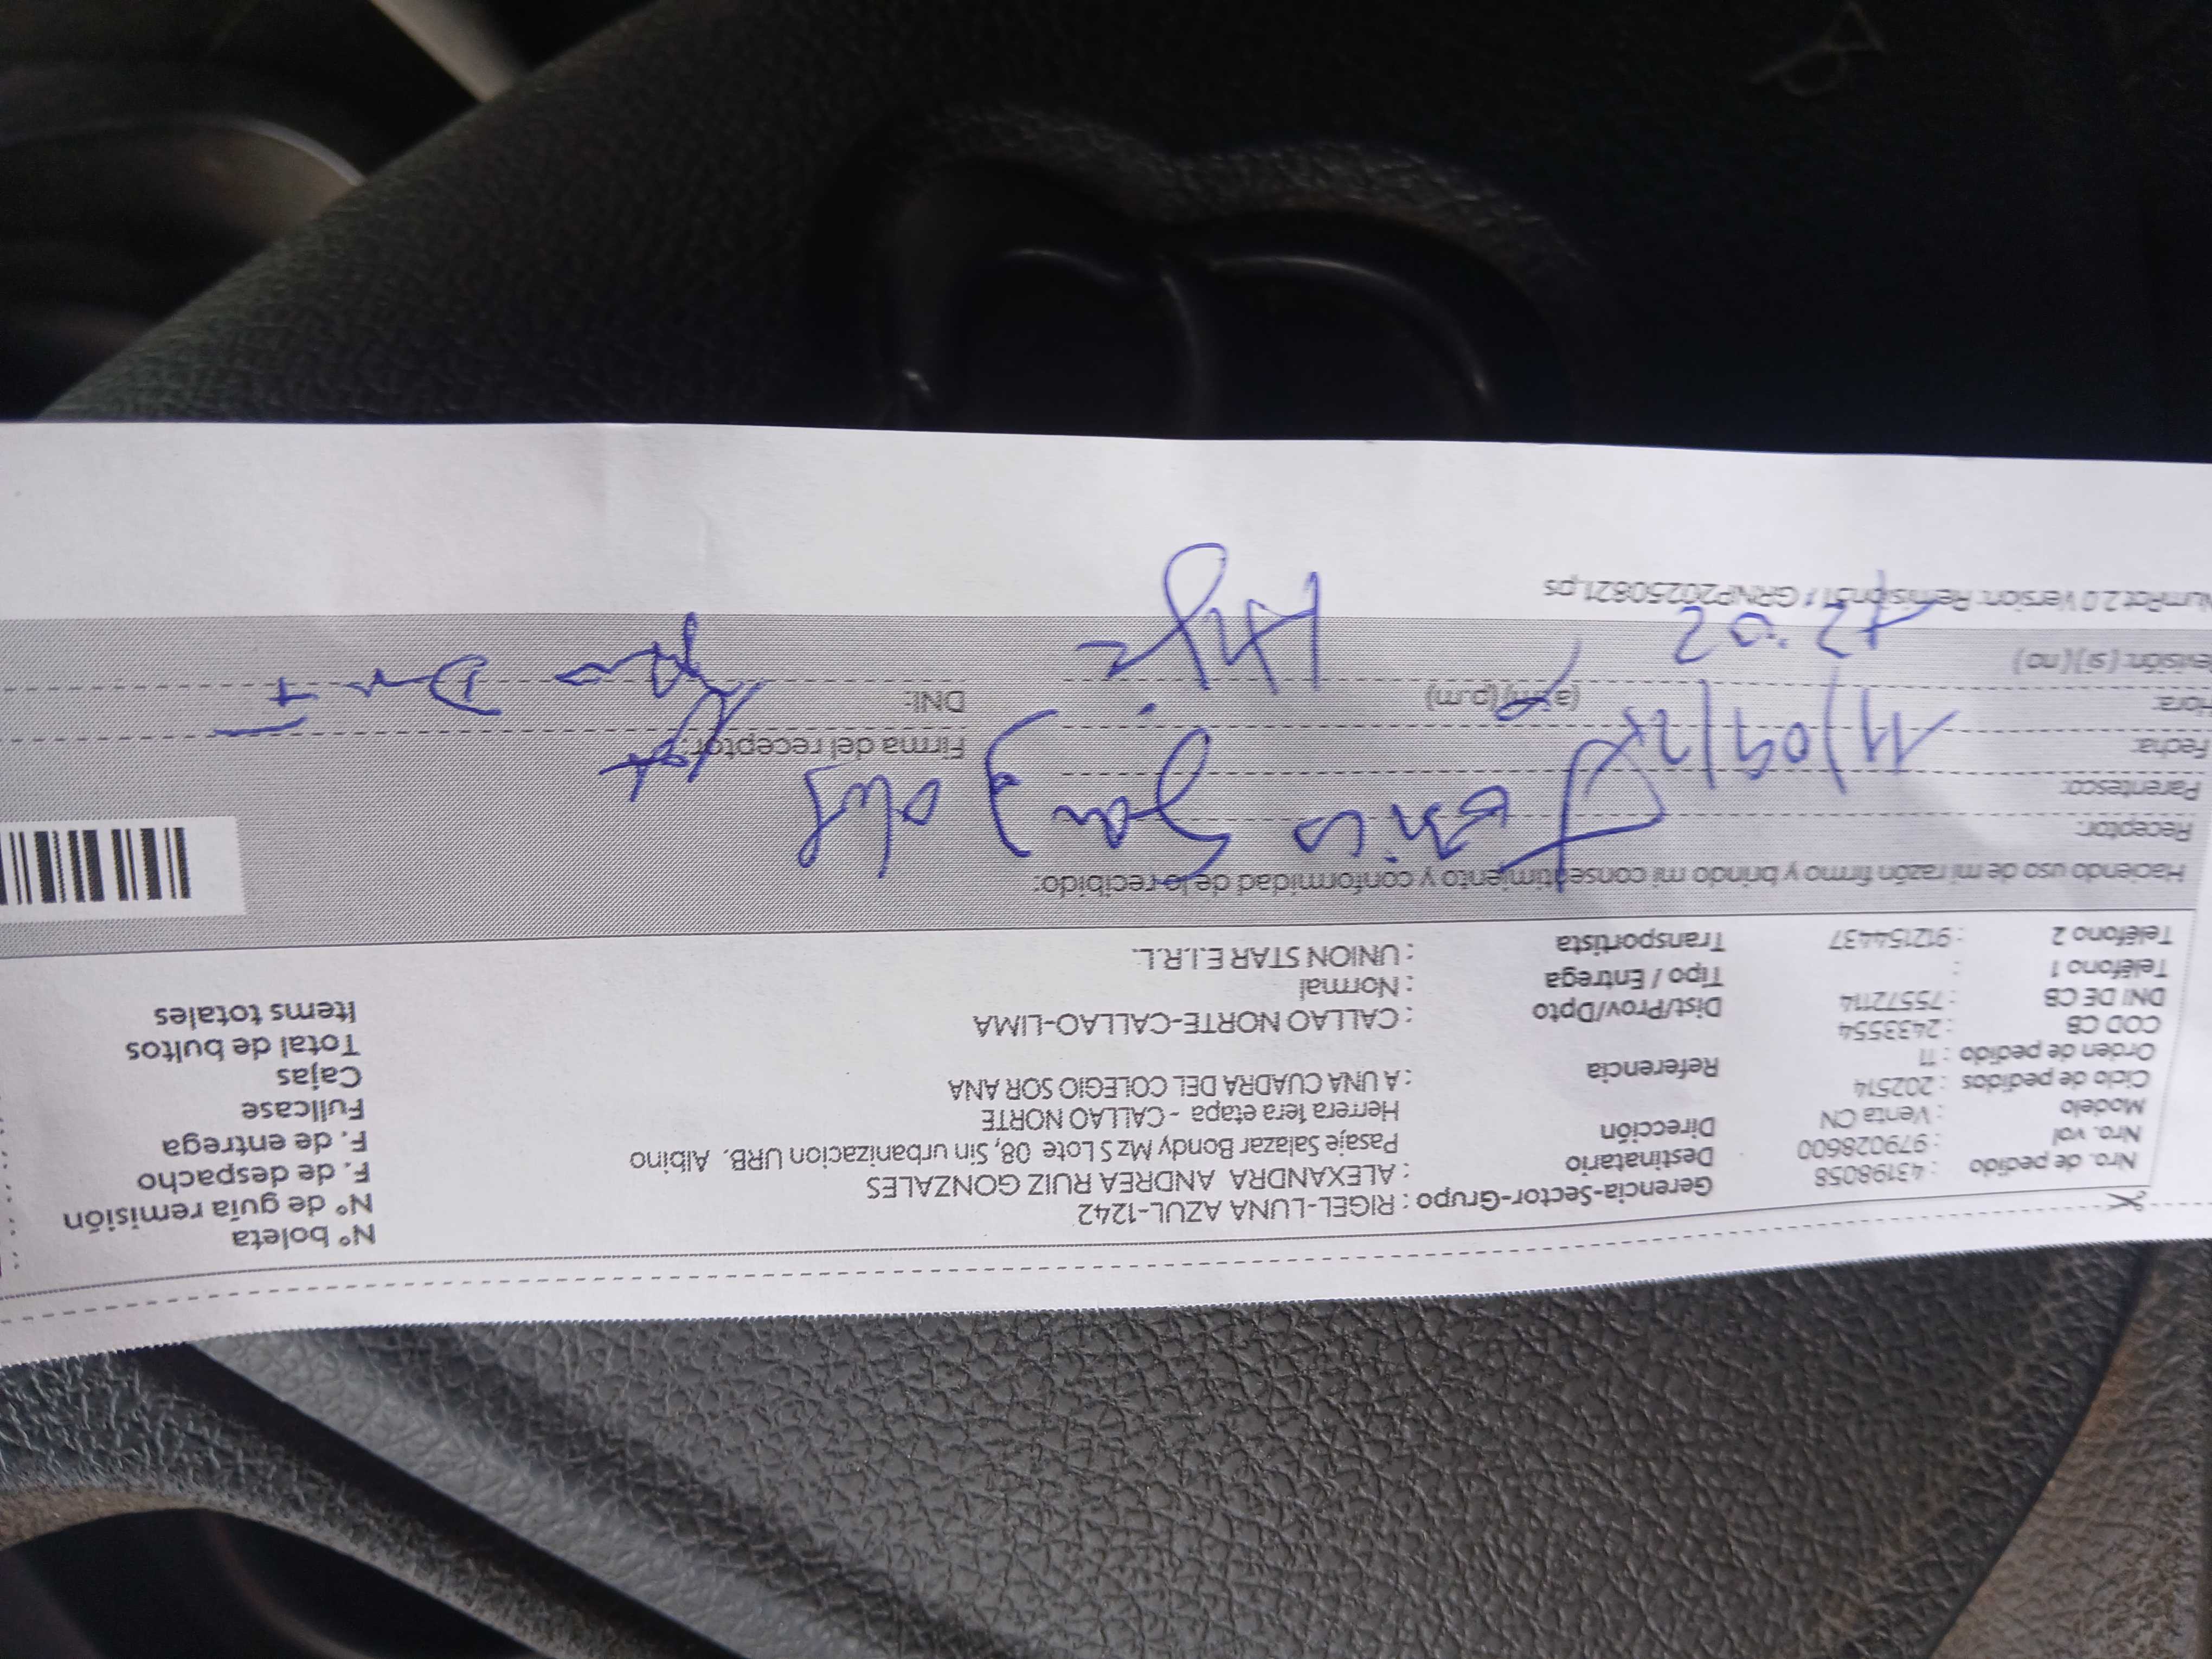 Gerencia-Sector-Grupo : RIGEL-LUNA AZUL-1242
Nro. de pedido : 43198058
Destinatario : ALEXANDRA ANDREA RUIZ GONZALES
Nro. vol : 979028600
Dirección Pasaje Salazar Bondy Mz S Lote 08, Sin urbanizacion URB. Albino
Herrera 1era etapa - CALLAO NORTE
Modelo : Venta CN
Ciclo de pedidos : 202514
Referencia : A UNA CUADRA DEL COLEGIO SOR ANA
Orden de pedido : 11
COD CB : 2433554
Dist/Prov/Dpto : CALLAO NORTE-CALLAO-LIMA
DNI DE CB : 75572114
Tipo / Entrega : Normal
Teléfono 1 :
Transportista : UNION STAR E.I.R.L.
Teléfono 2 : 912154437
N° boleta
N° de guía remisión
F. de despacho
F. de entrega
Fullcase
Cajas
Total de bultos
Items totales
Haciendo uso de mi razón firmo y brindo mi consentimiento y conformidad de lo recibido:
Receptor:
Parentesco:
Fecha: 11/09/25
Firma del receptor:
Hora: (a.m)(p.m)
DNI:
12:02
evisión: (si) (no)
NumRot 2.0 Version: Remision51 / GRNP20250821.ps